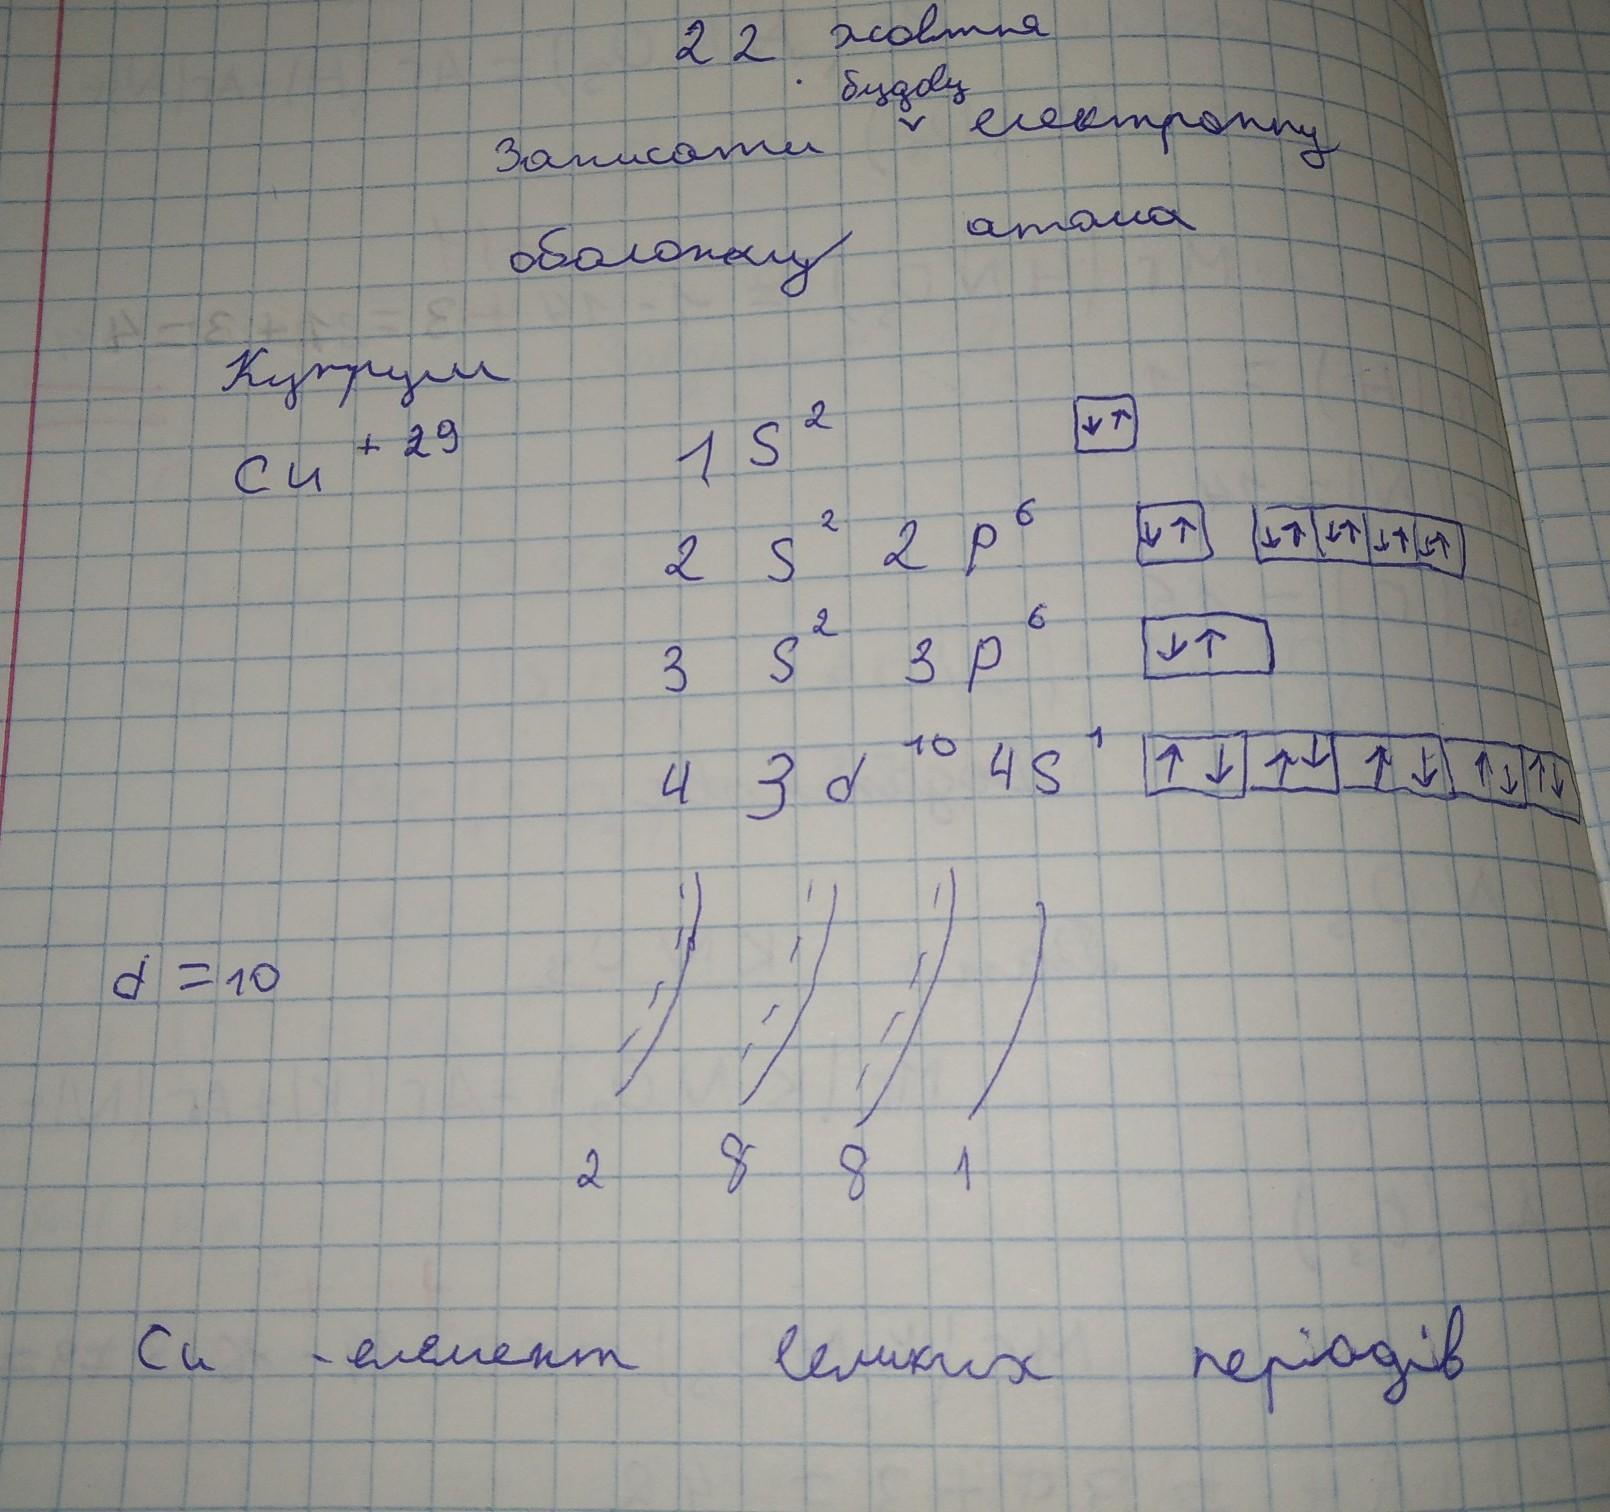 22 жовтня
будову
Записати ˅ електронну
оболонку атома
Купрум
Cu +29
1 S²
2 S² 2 p⁶
3 S² 3 p⁶
4 3 d¹⁰ 4S¹
d = 10
2 8 8 1
Cu - елемент великих періодів